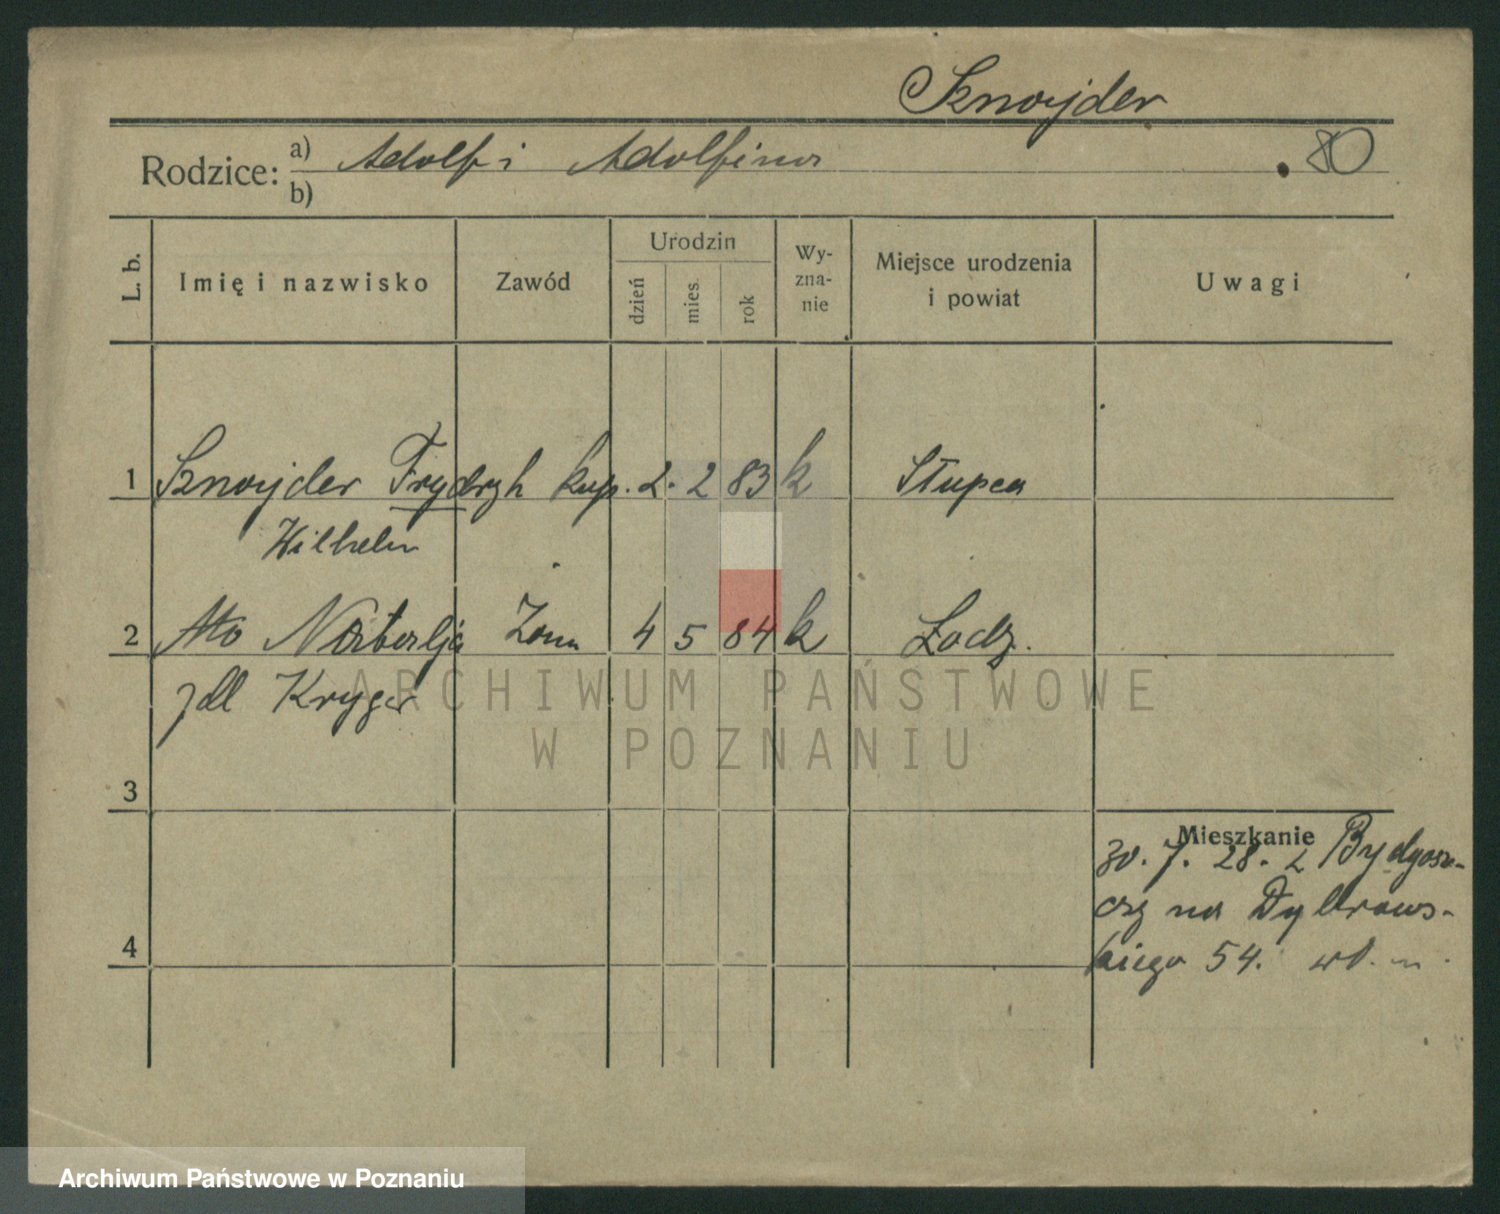 Sznajder
Rodzice: a) Adolf i Adolfina . 80
b)
L. b.
Imię i nazwisko
Zawód
Urodzin
dzień
mies.
rok
Wy-
zna-
nie
Miejsce urodzenia
i powiat
Uwagi
1 Sznajder Frydrych kup. 2. 2 83 k Słupca
Wilhelm
2 Żona 4 5 84 k Łodz.
Kryger
3
4
Mieszkanie
30. 7. 28. z Bydgosz-
czy na Dąbrows-
kiego 54.
ARCHIWUM PAŃSTWOWE
W POZNANIU
Archiwum Państwowe w Poznaniu